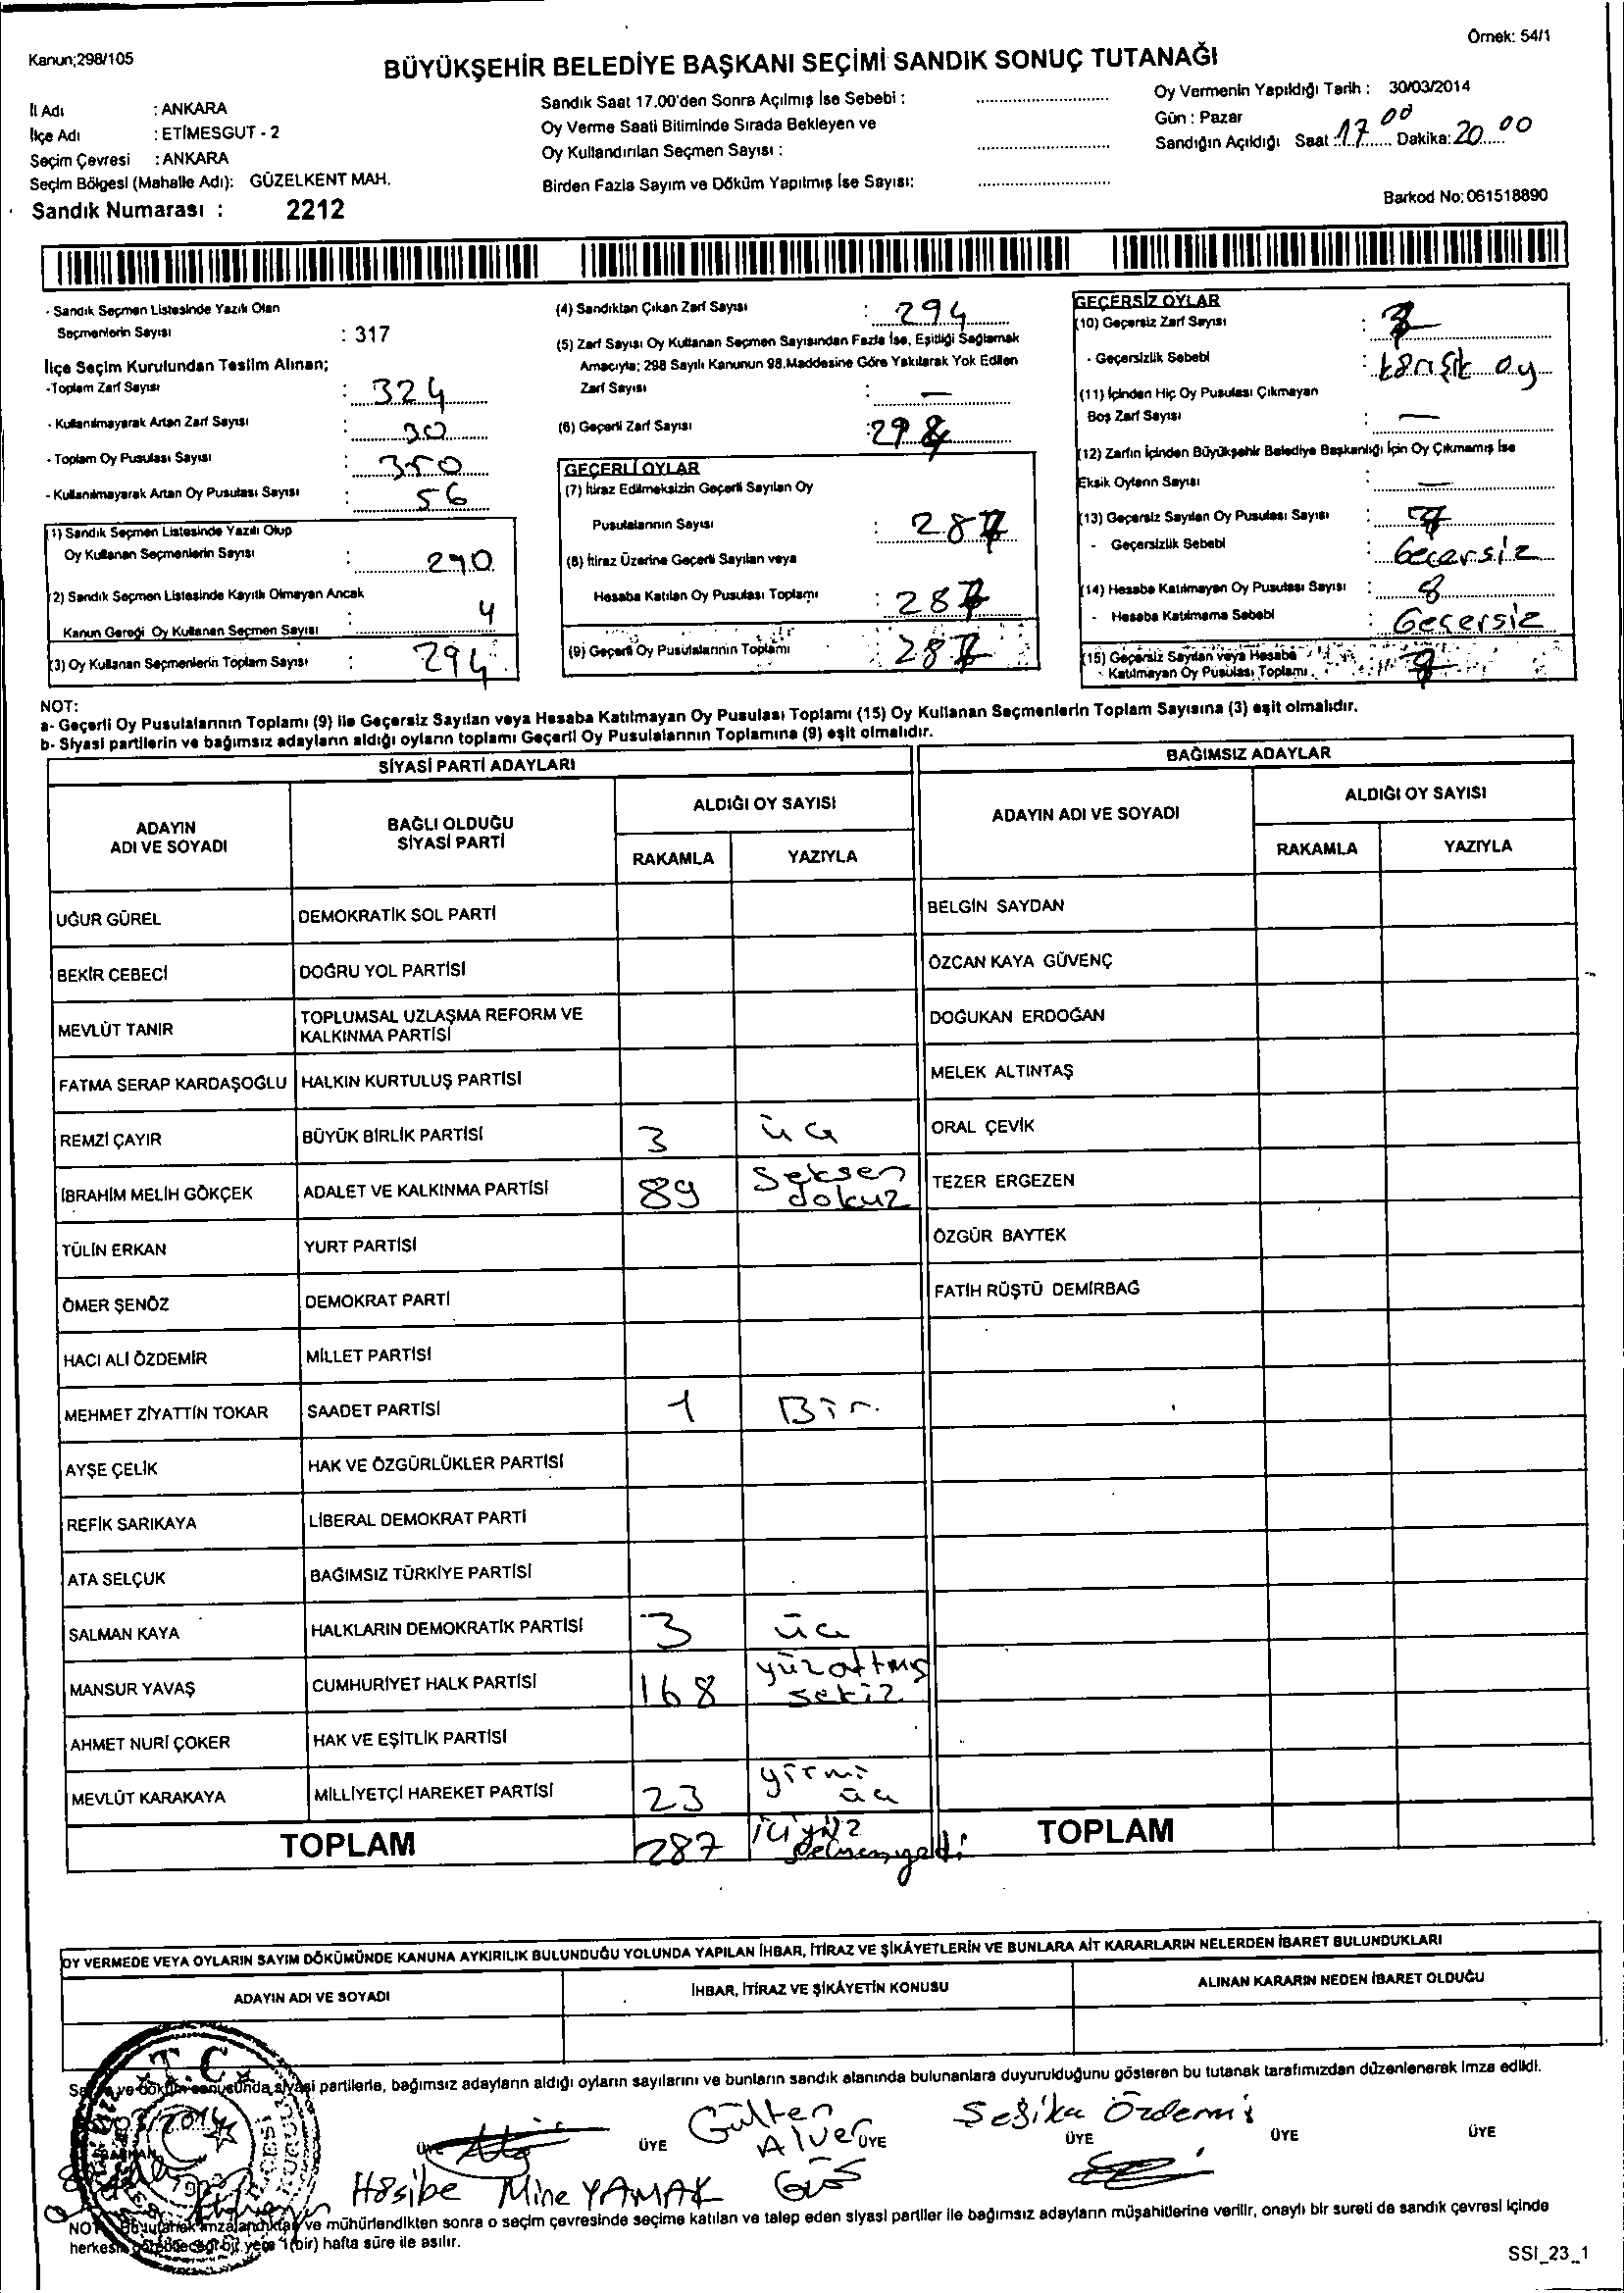 Kanun;298/105
Örnek: 54/1
BÜYÜKŞEHİR BELEDİYE BAŞKANI SEÇİMİ SANDIK SONUÇ TUTANAĞI
İl Adı : ANKARA
İlçe Adı : ETİMESGUT - 2
Seçim Çevresi : ANKARA
Seçim Bölgesi (Mahalle Adı): GÜZELKENT MAH.
Sandık Numarası : 2212
Sandık Saat 17.00'den Sonra Açılmış İse Sebebi :
Oy Verme Saati Bitiminde Sırada Bekleyen ve
Oy Kullandırılan Seçmen Sayısı :
Birden Fazla Sayım ve Döküm Yapılmış İse Sayısı:
Oy Vermenin Yapıldığı Tarih : 30/03/2014
Gün : Pazar
Sandığın Açıldığı Saat : 17 00 Dakika: 20 00
Barkod No: 061518890
- Sandık Seçmen Listesinde Yazılı Olan
Seçmenlerin Sayısı : 317
İlçe Seçim Kurulundan Teslim Alınan;
-Toplam Zarf Sayısı : 324
- Kullanılmayarak Artan Zarf Sayısı : 30
- Toplam Oy Pusulası Sayısı : 350
- Kullanılmayarak Artan Oy Pusulası Sayısı : 56
(1) Sandık Seçmen Listesinde Yazılı Olup
Oy Kullanan Seçmenlerin Sayısı : 290
(2) Sandık Seçmen Listesinde Kayıtlı Olmayan Ancak
Kanun Gereği Oy Kullanan Seçmen Sayısı : 4
(3) Oy Kullanan Seçmenlerin Toplam Sayısı : 294
(4) Sandıktan Çıkan Zarf Sayısı : 294
(5) Zarf Sayısı Oy Kullanan Seçmen Sayısından Fazla İse, Eşitliği Sağlamak
Amacıyla; 298 Sayılı Kanunun 98.Maddesine Göre Yakılarak Yok Edilen
Zarf Sayısı : —
(6) Geçerli Zarf Sayısı :
GEÇERLİ OYLAR
(7) İtiraz Edilmeksizin Geçerli Sayılan Oy
Pusulalarının Sayısı : 287
(8) İtiraz Üzerine Geçerli Sayılan veya
Hesaba Katılan Oy Pusulası Toplamı : 287
(9) Geçerli Oy Pusulalarının Toplamı : 287
GEÇERSİZ OYLAR
(10) Geçersiz Zarf Sayısı :
- Geçersizlik Sebebi : karışık oy
(11) İçinden Hiç Oy Pusulası Çıkmayan
Boş Zarf Sayısı : —
(12) Zarfın İçinden Büyükşehir Belediye Başkanlığı İçin Oy Çıkmamış İse
Eksik Oyların Sayısı : —
(13) Geçersiz Sayılan Oy Pusulası Sayısı : 7
- Geçersizlik Sebebi : Geçersiz
(14) Hesaba Katılmayan Oy Pusulası Sayısı : 8
- Hesaba Katılmama Sebebi : Geçersiz
(15) Geçersiz Sayılan veya Hesaba
Katılmayan Oy Pusulası Toplamı :
NOT:
a- Geçerli Oy Pusulalarının Toplamı (9) ile Geçersiz Sayılan veya Hesaba Katılmayan Oy Pusulası Toplamı (15) Oy Kullanan Seçmenlerin Toplam Sayısına (3) eşit olmalıdır.
b- Siyasi partilerin ve bağımsız adayların aldığı oyların toplamı Geçerli Oy Pusulalarının Toplamına (9) eşit olmalıdır.
SİYASİ PARTİ ADAYLARI
ADAYIN ADI VE SOYADI
BAĞLI OLDUĞU SİYASİ PARTİ
ALDIĞI OY SAYISI
RAKAMLA YAZIYLA
UĞUR GÜREL DEMOKRATİK SOL PARTİ
BEKİR CEBECİ DOĞRU YOL PARTİSİ
MEVLÜT TANIR TOPLUMSAL UZLAŞMA REFORM VE KALKINMA PARTİSİ
FATMA SERAP KARDAŞOĞLU HALKIN KURTULUŞ PARTİSİ
REMZİ ÇAYIR BÜYÜK BİRLİK PARTİSİ 3 üç
İBRAHİM MELİH GÖKÇEK ADALET VE KALKINMA PARTİSİ 89 Seksen dokuz
TÜLİN ERKAN YURT PARTİSİ
ÖMER ŞENÖZ DEMOKRAT PARTİ
HACI ALİ ÖZDEMİR MİLLET PARTİSİ
MEHMET ZİYATTİN TOKAR SAADET PARTİSİ 1 Bir.
AYŞE ÇELİK HAK VE ÖZGÜRLÜKLER PARTİSİ
REFİK SARIKAYA LİBERAL DEMOKRAT PARTİ
ATA SELÇUK BAĞIMSIZ TÜRKİYE PARTİSİ
SALMAN KAYA HALKLARIN DEMOKRATİK PARTİSİ 3 üç
MANSUR YAVAŞ CUMHURİYET HALK PARTİSİ 168 yüzaltmış sekiz
AHMET NURİ ÇOKER HAK VE EŞİTLİK PARTİSİ
MEVLÜT KARAKAYA MİLLİYETÇİ HAREKET PARTİSİ 23 yirmi üç
TOPLAM 287
BAĞIMSIZ ADAYLAR
ADAYIN ADI VE SOYADI
ALDIĞI OY SAYISI
RAKAMLA YAZIYLA
BELGİN SAYDAN
ÖZCAN KAYA GÜVENÇ
DOĞUKAN ERDOĞAN
MELEK ALTINTAŞ
ORAL ÇEVİK
TEZER ERGEZEN
ÖZGÜR BAYTEK
FATİH RÜŞTÜ DEMİRBAĞ
TOPLAM
OY VERMEDE VEYA OYLARIN SAYIM DÖKÜMÜNDE KANUNA AYKIRILIK BULUNDUĞU YOLUNDA YAPILAN İHBAR, İTİRAZ VE ŞİKÂYETLERİN VE BUNLARA AİT KARARLARIN NELERDEN İBARET BULUNDUKLARI
ADAYIN ADI VE SOYADI
İHBAR, İTİRAZ VE ŞİKÂYETİN KONUSU
ALINAN KARARIN NEDEN İBARET OLDUĞU
T.C.
siyasi partilerle, bağımsız adayların aldığı oyların sayılarını ve bunların sandık alanında bulunanlara duyurulduğunu gösteren bu tutanak tarafımızdan düzenlenerek imza edildi.
Gülten Alver
Şefika Özdemi
ÜYE ÜYE ÜYE ÜYE ÜYE
Hasibe Mine YAMAK
ve mühürlendikten sonra o seçim çevresinde seçime katılan ve talep eden siyasi partiler ile bağımsız adayların müşahitlerine verilir, onaylı bir sureti de sandık çevresi içinde
1(bir) hafta süre ile asılır.
SSI_23_1